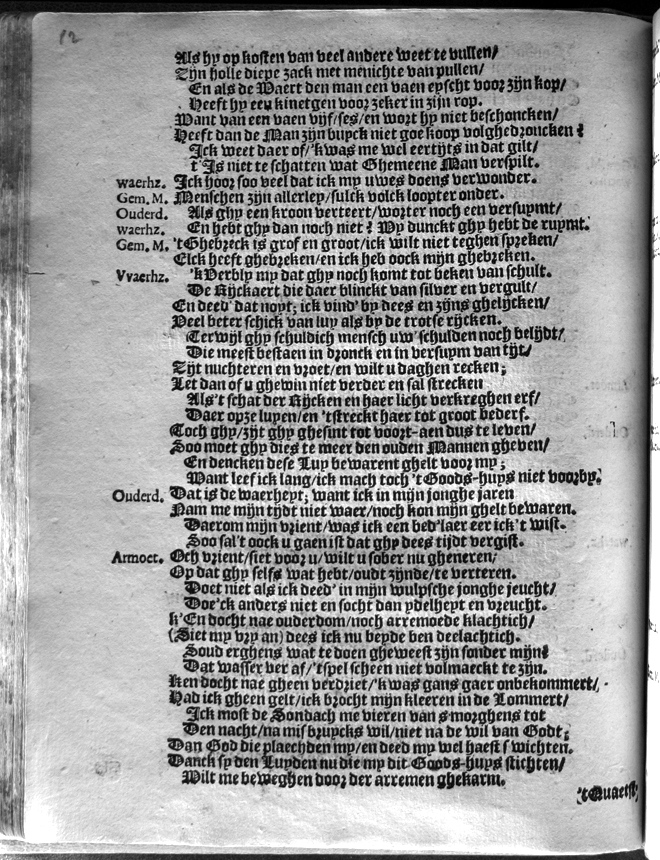 12
Als hy op kosten van veel andere weet te vullen/
Zijn holle diepe zack met menichte van pullen/
En als de Waert den man een vaen eyscht voor zijn kop/
Heeft hy een kinetgen voor zeker in zijn rop.
Want van een vaen vijf/ses/en wort hy niet beschoncken/
Heeft dan de Man zijn buyck niet goe koop volghedroncken?
Ick weet daer of/'kwas me wel eertijts in dat gilt/
t'Is niet te schatten wat Ghemeene Man verspilt.
waerhz. Ick hoor soo veel dat ick my uwes doens verwonder.
Gem. M. Menschen zijn allerley/sulck volck loopter onder.
Ouderd. Als ghy een kroon verteert/worter noch een versuymt/
waerhz. En hebt ghy dan noch niet? My dunckt ghy hebt de ruymt.
Gem. M. 'tGhebreck is grof en groot/ick wilt niet teghen spreken/
Elck heeft ghebreken/en ick heb oock mijn ghebreken.
Vvaerhz. 'kVerbly my dat ghy noch komt tot beken van schult.
De Rijckaert die daer blinckt van silver en vergult/
En deed' dat noyt; ick vind' by dees en zijns ghelijcken/
Veel beter schick van luy als by de trotse rijcken.
Terwijl ghy schuldich mensch uw' schulden noch belijdt/
Die meest bestaen in dronck en in versuym van tijt/
Zijt nuchteren en vroet/en wilt u daghen recken;
Let dan of u ghewin niet verder en sal strecken
Als't schat der Rijcken en haer licht verkreghen erf/
Daer opze luyen/en 'tstreckt haer tot groot bederf.
Toch ghy/zijt ghy ghesint tot voort-aen dus te leven/
Soo moet ghy dies te meer den ouden Mannen gheven/
En dencken dese Luy bewarent ghelt voor my;
Want leef ick lang/ick mach toch 't Goods-huys niet voorby.
Ouderd. Dat is de waerheyt; want ick in mijn jonghe jaren
Nam me mijn tijdt niet waer/noch kon mijn ghelt bewaren.
Daerom mijn vrient/was ick een bed'laer eer ick't wist.
Soo sal't oock u gaen ist dat ghy dees tijdt vergist.
Armoet. Och vrient/siet voor u/wilt u sober nu gheneren/
Op dat ghy selfs wat hebt/oudt zijnde/te verteren.
Doet niet als ick deed' in mijn wulpsche jonghe jeucht/
Doe'ck anders niet en socht dan ydelheyt en vreucht.
k'En docht nae ouderdom/noch arremoede klachtich/
(Siet my vry an) dees ick nu beyde ben deelachtich.
Soud erghens wat te doen gheweest zijn sonder mijn?
Dat wasser ver af/'tspel scheen niet volmaeckt te zijn.
Ken docht nae gheen verdriet/'kwas gans gaer onbekommert/
Had ick gheen gelt/ick brocht mijn kleeren in de Lommert/
Ick most de Sondach me vieren van smorghens tot
Den nacht/na misbruycks wil/niet na de wil van Godt;
Dan God die plaechden my/en deed my wel haest swichten.
Danck sy den Luyden nu die my dit Goods-huys stichten/
Wilt me beweghen door der arremen ghekarm.
'tQuaetst